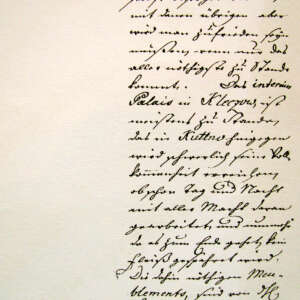 mit denen übrigen aber
wird man zufrieden seyn
müßen, wenn nur das
aller nöthigste zu Stande
kommt. Das interims
Palais in Kleczow, ist
meistens zu Stande,
das in Kuttno hingegen
wird schwerlich seine Voll-
kommenheit erreichen,
obschon Tag und Nacht
mit aller Macht daran
gearbeitet, und
da es zum Ende geht, kein
Fleiß gespahret wird.
Die dahin nöthigen Meu-
blements, sind von